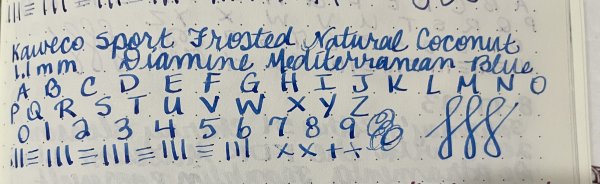 Kaweco Sport Frosted Natural Coconut
1.1 mm Diamine Mediterranean Blue
A B C D E F G H I J K L M N O
P Q R S T U V W X Y Z
0 1 2 3 4 5 6 7 8 9